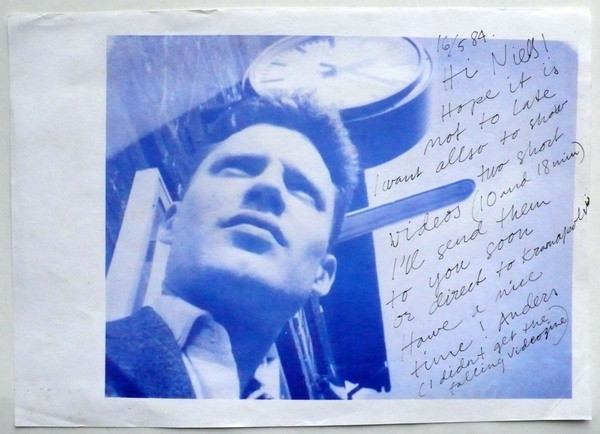 16/5 84.
Hi Niels!
Hope it is
not to late
I want allso to show
videos two short
(10 and 18 min)
I'll send them
to you soon
or direct to
Have a nice
time! Anders
(I didnt get the
talking videozine)